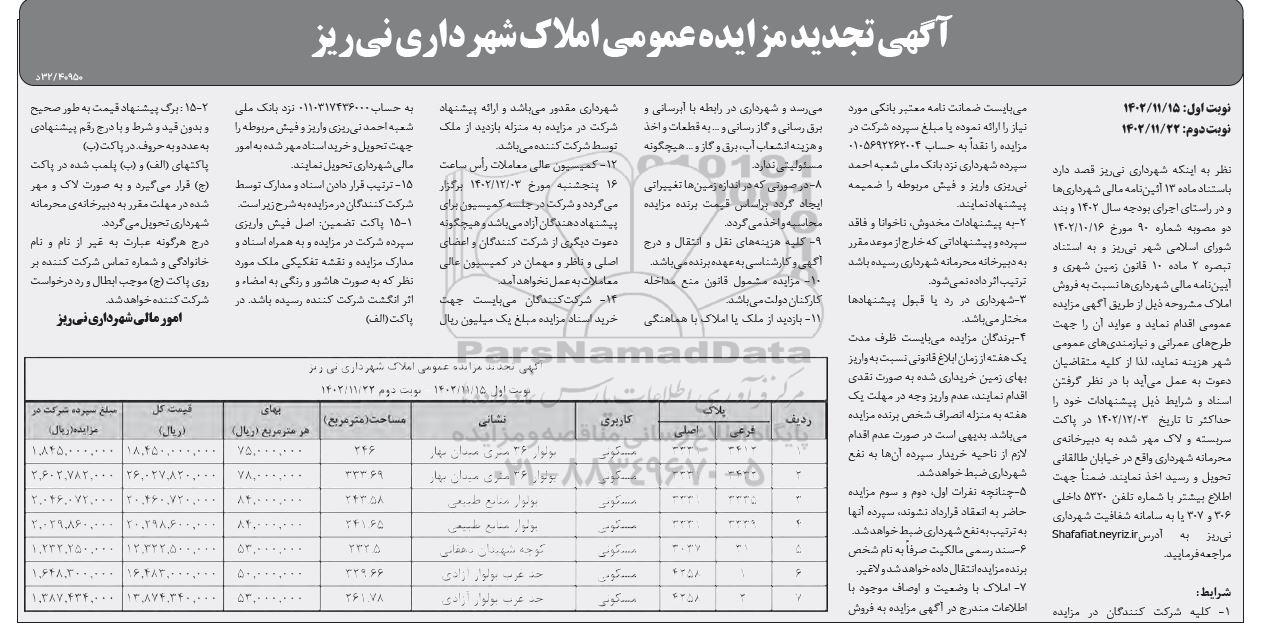 آگهی تجدید مزایده عمومی املاک شهرداری نی ریز
۳۲/۴۰۹۵۰د
نوبت اول: ۱۴۰۲/۱۱/۱۵
نوبت دوم: ۱۴۰۲/۱۱/۲۲
نظر به اینکه شهرداری نی‌ریز قصد دارد
باستناد ماده ۱۳ آئین‌نامه مالی شهرداری‌ها
و در راستای اجرای بودجه سال ۱۴۰۲ و بند
دو مصوبه شماره ۹۰ مورخ ۱۴۰۲/۱۰/۱۶
شورای اسلامی شهر نی‌ریز و به استناد
تبصره ۲ ماده ۱۰ قانون زمین شهری و
آیین‌نامه مالی شهرداری‌ها نسبت به فروش
املاک مشروحه ذیل از طریق آگهی مزایده
عمومی اقدام نماید و عواید آن را جهت
طرح‌های عمرانی و نیازمندی‌های عمومی
شهر هزینه نماید، لذا از کلیه متقاضیان
دعوت به عمل می‌آید با در نظر گرفتن
اسناد و شرایط ذیل پیشنهادات خود را
حداکثر تا تاریخ ۱۴۰۲/۱۲/۰۳ در پاکت
سربسته و لاک مهر شده به دبیرخانه‌ی
محرمانه شهرداری واقع در خیابان طالقانی
تحویل و رسید اخذ نمایند. ضمناً جهت
اطلاع بیشتر با شماره تلفن ۵۳۲۰ داخلی
۳۰۶ و ۳۰۷ یا به سامانه شفافیت شهرداری
نی‌ریز به آدرس Shafafiat.neyriz.ir
مراجعه فرمایید.
شرایط:
۱- کلیه شرکت کنندگان در مزایده
می‌بایست ضمانت نامه معتبر بانکی مورد
نیاز را ارائه نموده یا مبلغ سپرده شرکت در
مزایده را نقداً به حساب ۰۱۰۵۶۹۲۲۶۲۰۰۴
سپرده شهرداری نزد بانک ملی شعبه احمد
نی‌ریزی واریز و فیش مربوطه را ضمیمه
پیشنهاد نمایند.
۲-به پیشنهادات مخدوش، ناخوانا و فاقد
سپرده و پیشنهاداتی که خارج از موعد مقرر
به دبیرخانه محرمانه شهرداری رسیده باشد
ترتیب اثر داده نمی‌شود.
۳-شهرداری در رد یا قبول پیشنهادها
مختار می‌باشد.
۴-برندگان مزایده می‌بایست ظرف مدت
یک هفته از زمان ابلاغ قانونی نسبت به واریز
بهای زمین خریداری شده به صورت نقدی
اقدام نمایند، عدم واریز وجه در مهلت یک
هفته به منزله انصراف شخص برنده مزایده
می‌باشد. بدیهی است در صورت عدم اقدام
لازم از ناحیه خریدار سپرده آن‌ها به نفع
شهرداری ضبط خواهد شد.
۵-چنانچه نفرات اول، دوم و سوم مزایده
حاضر به انعقاد قرارداد نشوند، سپرده آنها
به ترتیب به نفع شهرداری ضبط خواهد شد.
۶-سند رسمی مالکیت صرفاً به نام شخص
برنده مزایده انتقال داده خواهد شد و لاغیر.
۷- املاک با وضعیت و اوصاف موجود با
اطلاعات مندرج در آگهی مزایده به فروش
می‌رسد و شهرداری در رابطه با آبرسانی و
برق رسانی و گاز رسانی و ... به قطعات و اخذ
و هزینه انشعاب آب، برق و گاز و ... هیچگونه
مسئولیتی ندارد.
۸-در صورتی که در اندازه زمین‌ها تغییراتی
ایجاد گردد براساس قیمت برنده مزایده
محاسبه و اخذ می گردد.
۹- کلیه هزینه‌های نقل و انتقال و درج
آگهی و کارشناسی به عهده برنده می‌باشد.
۱۰- مزایده مشمول قانون منع مداخله
کارکنان دولت می‌باشد.
۱۱- بازدید از ملک یا املاک با هماهنگی
شهرداری مقدور می‌باشد و ارائه پیشنهاد
شرکت در مزایده به منزله بازدید از ملک
توسط شرکت کننده می‌باشد.
۱۲- کمیسیون عالی معاملات رأس ساعت
۱۶ پنجشنبه مورخ ۱۴۰۲/۱۲/۰۳ برگزار
می‌گردد و شرکت در جلسه کمیسیون برای
پیشنهاد دهندگان آزاد می‌باشد و هیچگونه
دعوت دیگری از شرکت کنندگان و اعضای
اصلی و ناظر و مهمان در کمیسیون عالی
معاملات به عمل نخواهد آمد.
۱۴- شرکت‌کنندگان می‌بایست جهت
خرید اسناد مزایده مبلغ یک میلیون ریال
به حساب ۰۱۱۰۳۱۷۴۳۶۰۰۰ نزد بانک ملی
شعبه احمد نی‌ریزی واریز و فیش مربوطه را
جهت تحویل و خرید اسناد مهر شده به امور
مالی شهرداری تحویل نمایند.
۱۵- ترتیب قرار دادن اسناد و مدارک توسط
شرکت کنندگان در مزایده به شرح زیر است.
۱۵-۱ پاکت تضمین: اصل فیش واریزی
سپرده شرکت در مزایده و به همراه اسناد و
مدارک مزایده و نقشه تفکیکی ملک مورد
نظر که به صورت هاشور و رنگی به امضاء و
اثر انگشت شرکت کننده رسیده باشد. در
پاکت (الف)
۱۵-۲: برگ پیشنهاد قیمت به طور صحیح
و بدون قید و شرط و با درج رقم پیشنهادی
به عدد و به حروف. در پاکت (ب)
پاکتهای (الف) و (ب) پلمب شده در پاکت
(ج) قرار می‌گیرد و به صورت لاک و مهر
شده در مهلت مقرر به دبیرخانه‌ی محرمانه
شهرداری تحویل می‌گردد.
درج هرگونه عبارت به غیر از نام و نام
خانوادگی و شماره تماس شرکت کننده بر
روی پاکت (ج) موجب ابطال و رد درخواست
شرکت کننده خواهد شد.
امور مالی شهرداری نی‌ریز
آگهی تجدید مزایده عمومی املاک شهرداری نی ریز
نوبت اول ۱۴۰۲/۱۱/۱۵ نوبت دوم ۱۴۰۲/۱۱/۲۲
ردیف پلاک کاربری نشانی مساحت(مترمربع) بهای هر مترمربع (ریال) قیمت کل (ریال) مبلغ سپرده شرکت در مزایده(ریال)
فرعی اصلی
۱ ۳۴۱۲ ۳۳۳۱ مسکونی بولوار ۳۶ متری میدان بهار ۲۴۶ ۷۵,۰۰۰,۰۰۰ ۱۸,۴۵۰,۰۰۰,۰۰۰ ۱,۸۴۵,۰۰۰,۰۰۰
۲ ۳۴۳۳ ۳۳۳۱ مسکونی بولوار ۳۶ متری میدان بهار ۳۳۳.۶۹ ۷۸,۰۰۰,۰۰۰ ۲۶,۰۲۷,۸۲۰,۰۰۰ ۲,۶۰۲,۷۸۲,۰۰۰
۳ ۳۳۳۵ ۳۳۳۱ مسکونی بولوار منابع طبیعی ۲۴۳.۵۸ ۸۴,۰۰۰,۰۰۰ ۲۰,۴۶۰,۷۲۰,۰۰۰ ۲,۰۴۶,۰۷۲,۰۰۰
۴ ۳۳۳۹ ۳۳۳۱ مسکونی بولوار منابع طبیعی ۲۴۱.۶۵ ۸۴,۰۰۰,۰۰۰ ۲۰,۲۹۸,۶۰۰,۰۰۰ ۲,۰۲۹,۸۶۰,۰۰۰
۵ ۳۱ ۳۰۳۷ مسکونی کوچه شهیدان دهقانی ۲۳۲.۵ ۵۳,۰۰۰,۰۰۰ ۱۲,۳۲۲,۵۰۰,۰۰۰ ۱,۲۳۲,۲۵۰,۰۰۰
۶ ۱ ۴۲۵۸ مسکونی حد غرب بولوار آزادی ۳۲۹.۶۶ ۵۰,۰۰۰,۰۰۰ ۱۶,۴۸۳,۰۰۰,۰۰۰ ۱,۶۴۸,۳۰۰,۰۰۰
۷ ۲ ۴۲۵۸ مسکونی حد غرب بولوار آزادی ۲۶۱.۷۸ ۵۳,۰۰۰,۰۰۰ ۱۳,۸۷۴,۳۴۰,۰۰۰ ۱,۳۸۷,۴۳۴,۰۰۰
ParsNamadData
۰۲۱-۸۸۳۴۹۶۷۰-۵